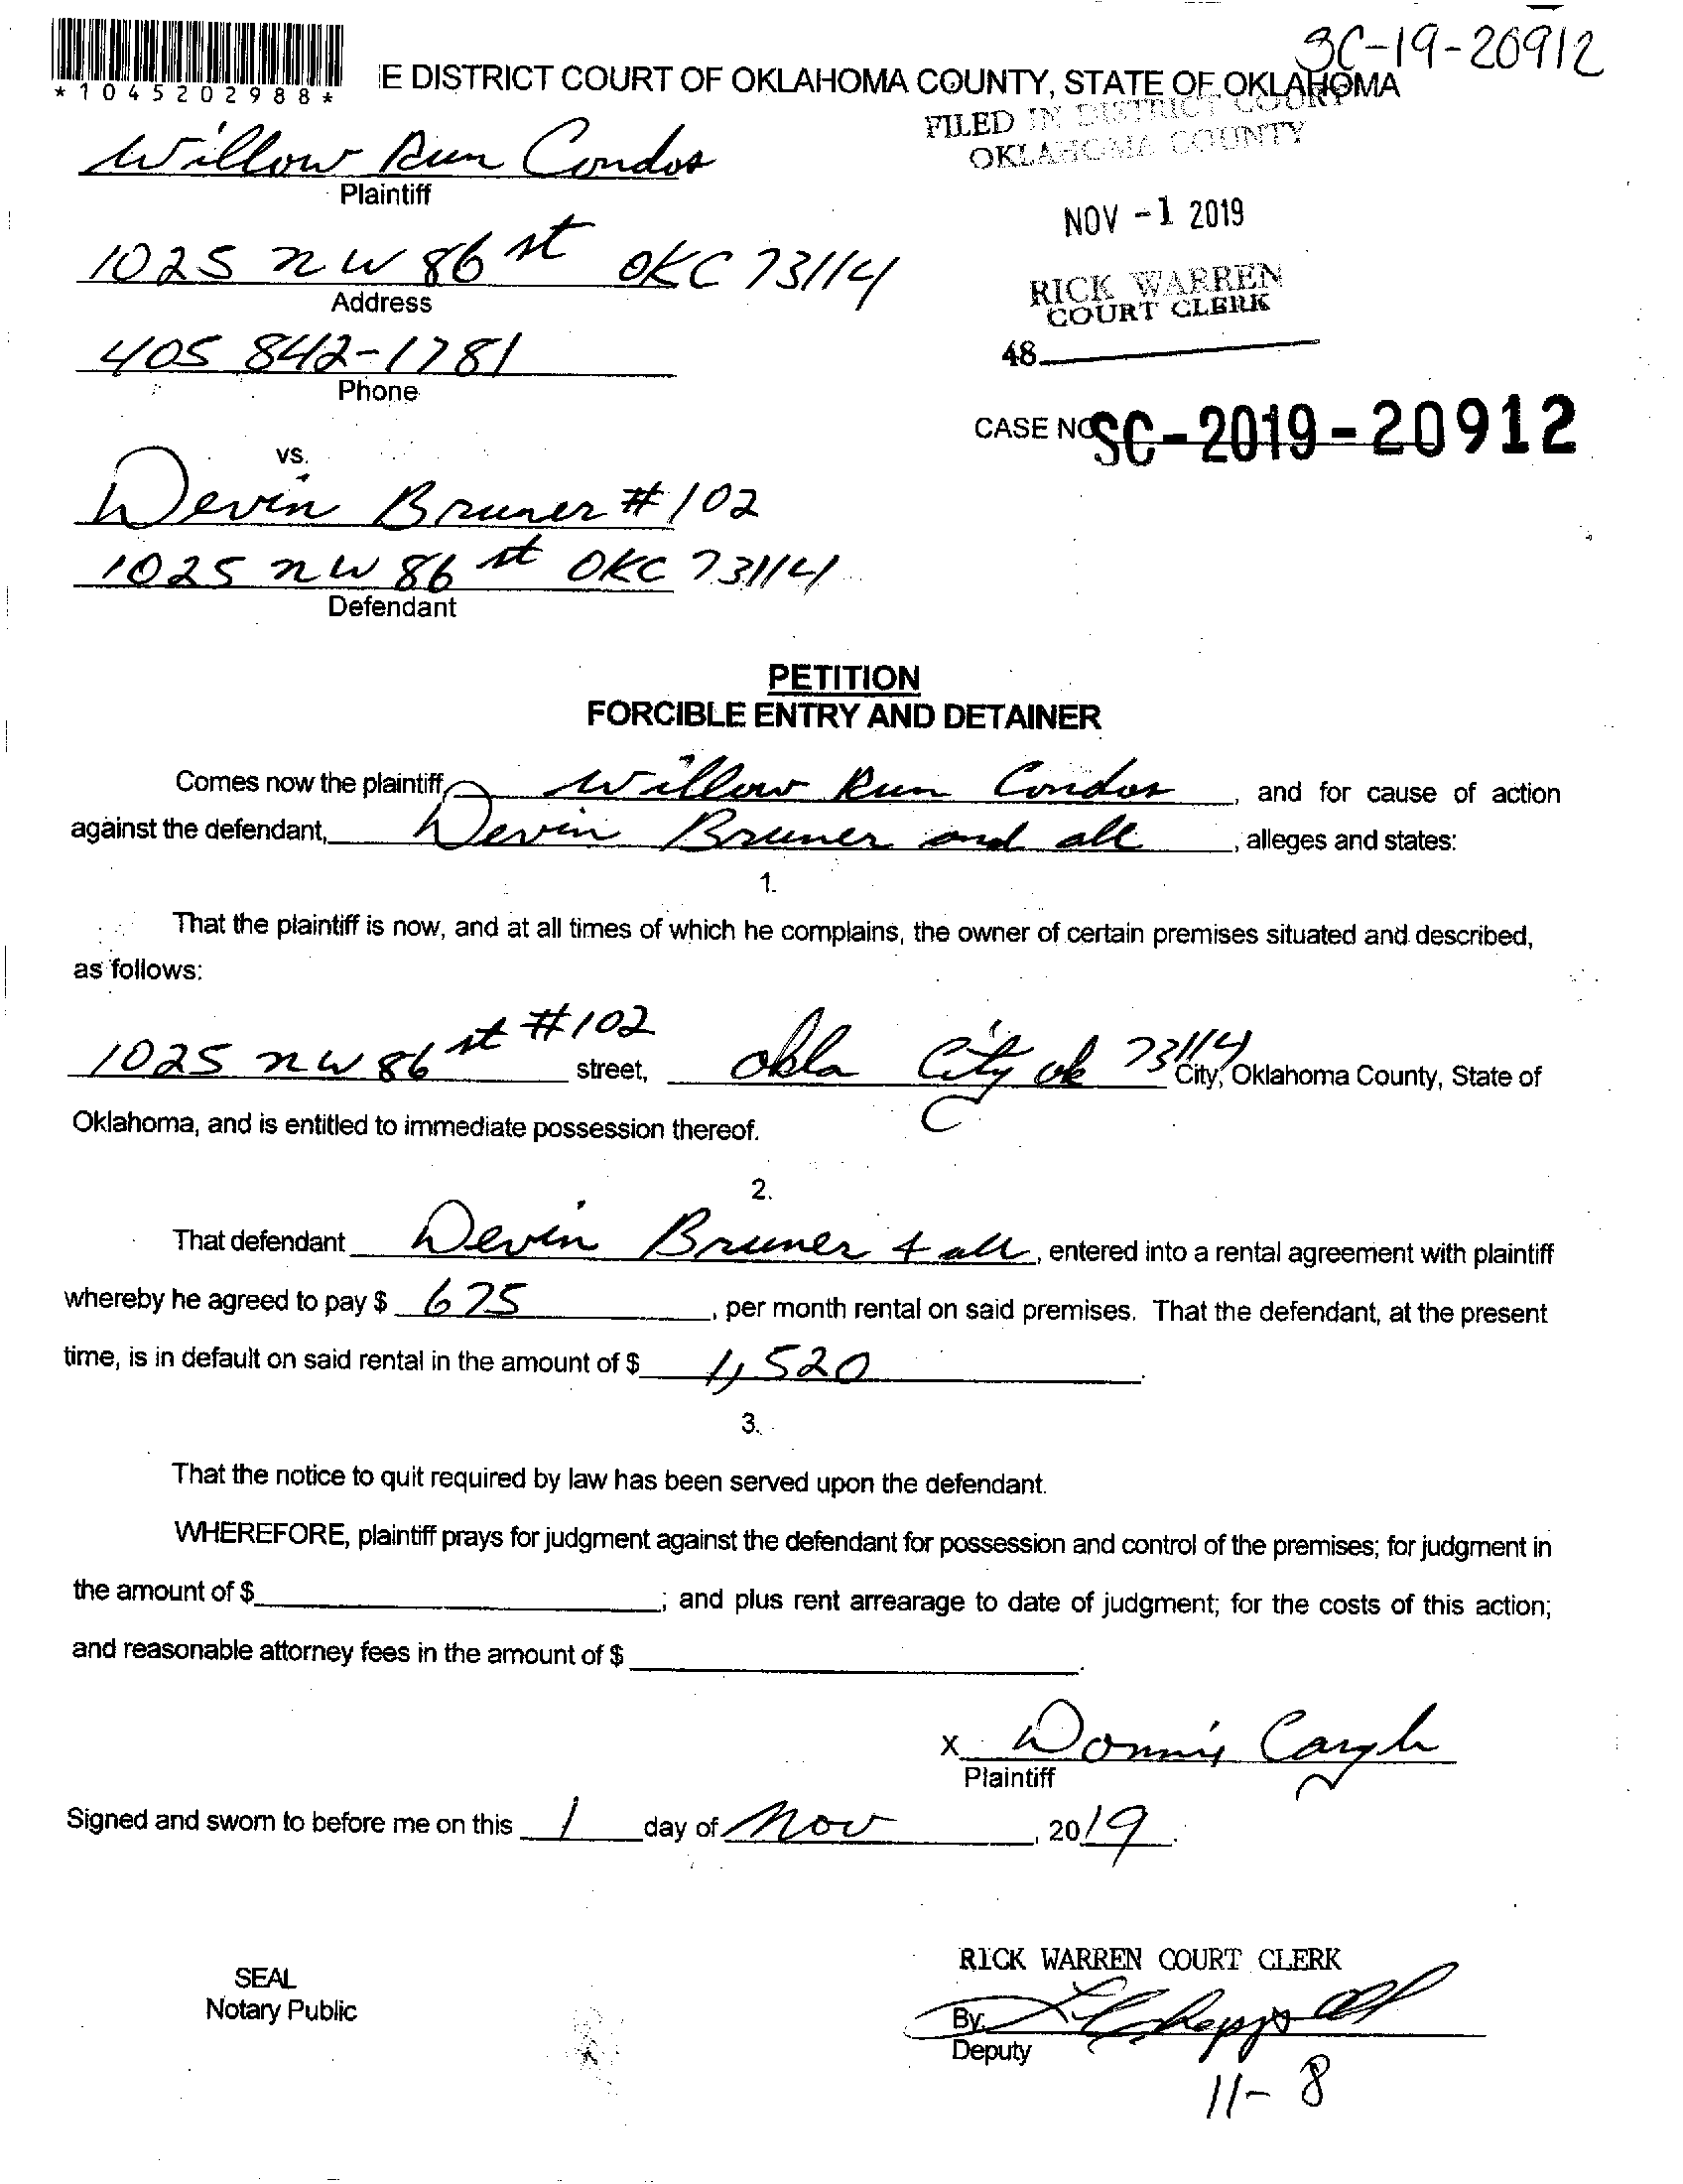 SC-19-20912
*1045202988*
E DISTRICT COURT OF OKLAHOMA COUNTY, STATE OF OKLAHOMA
FILED IN DISTRICT COURT
OKLAHOMA COUNTY
Willow Run Condos
Plaintiff
NOV -1 2019
1025 NW 86 st OKC 73114
Address
RICK WARREN
COURT CLERK
405 842-1781
Phone
48
CASE NO SC-2019-20912
vs.
Devin Bruner #102
1025 NW 86 st OKC 73114
Defendant
PETITION
FORCIBLE ENTRY AND DETAINER
Comes now the plaintiff, Willow Run Condos, and for cause of action
against the defendant, Devin Bruner and all, alleges and states:
1.
That the plaintiff is now, and at all times of which he complains, the owner of certain premises situated and described,
as follows:
1025 NW 86 st #102 street, Okla City ok 73114 City, Oklahoma County, State of
Oklahoma, and is entitled to immediate possession thereof.
2.
That defendant Devin Bruner & all, entered into a rental agreement with plaintiff
whereby he agreed to pay $ 675, per month rental on said premises. That the defendant, at the present
time, is in default on said rental in the amount of $ 1,520.
3.
That the notice to quit required by law has been served upon the defendant.
WHEREFORE, plaintiff prays for judgment against the defendant for possession and control of the premises; for judgment in
the amount of $ ; and plus rent arrearage to date of judgment; for the costs of this action;
and reasonable attorney fees in the amount of $ .
X
Plaintiff
Signed and sworn to before me on this 1 day of Nov, 2019.
RICK WARREN COURT CLERK
SEAL
Notary Public
By
Deputy
11-8